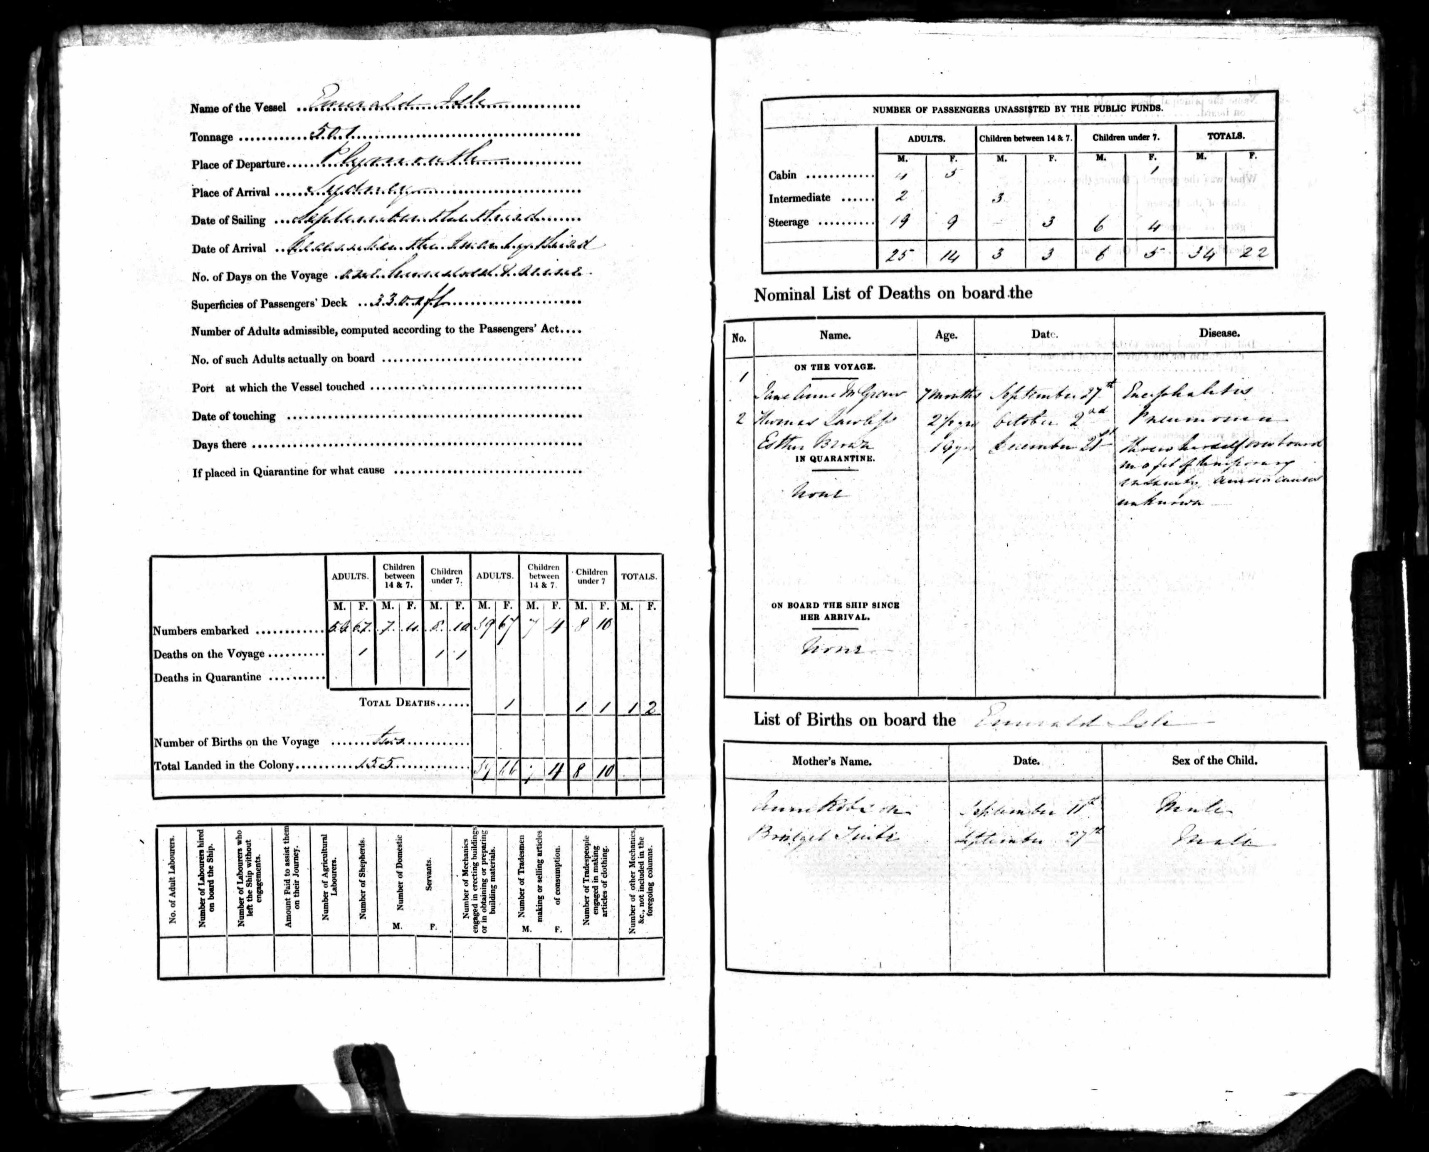 Name of the Vessel Emerald Isle
Tonnage 501
Place of Departure Plymouth
Place of Arrival Sydney
Date of Sailing September the third
Date of Arrival the
No. of Days on the Voyage one hundred & nine
Superficies of Passengers' Deck
Number of Adults admissible, computed according to the Passengers' Act
No. of such Adults actually on board
Port at which the Vessel touched
Date of touching
Days there
If placed in Quarantine for what cause
ADULTS. Children between 14 & 7. Children under 7. ADULTS. Children between 14 & 7. Children under 7 TOTALS.
M. F. M. F. M. F. M. F. M. F. M. F. M. F.
Numbers embarked 67 7 4 8 10 59 67 7 4 8 10
Deaths on the Voyage 1 1 1
Deaths in Quarantine
TOTAL DEATHS 1 1 1 1 2
Number of Births on the Voyage two
Total Landed in the Colony 155 59 66 7 4 8 10
No. of Adult Labourers.
Number of Labourers hired on board the Ship.
Number of Labourers who left the Ship without engagements.
Amount Paid to assist them on their Journey.
Number of Agricultural Labourers.
Number of Shepherds.
Number of Domestic Servants. M. F.
Number of Mechanics engaged in erecting buildings or in obtaining or preparing building materials.
Number of Tradesmen making or selling articles of consumption. M. F.
Number of Tradespeople engaged in making articles of clothing.
Number of other Mechanics, &c., not included in the foregoing columns.
NUMBER OF PASSENGERS UNASSISTED BY THE PUBLIC FUNDS.
ADULTS. Children between 14 & 7. Children under 7. TOTALS.
M. F. M. F. M. F. M. F.
Cabin 4 5 1
Intermediate 2 3
Steerage 19 9 3 6 4
25 14 3 3 6 5 34 22
Nominal List of Deaths on board the
No. Name. Age. Date. Disease.
ON THE VOYAGE.
1
Jane Anne McGraw 7 months September 27th Encephalitis
2 Thomas October 2nd Pneumonia
Esther Brown 19 yrs December 21st threw herself overboard
IN QUARANTINE. in a fit of temporary
None insanity causes
unknown
ON BOARD THE SHIP SINCE
HER ARRIVAL.
None
List of Births on board the Emerald Isle
Mother's Name. Date. Sex of the Child.
Anne September 11th Male
Bridget September 27th Male